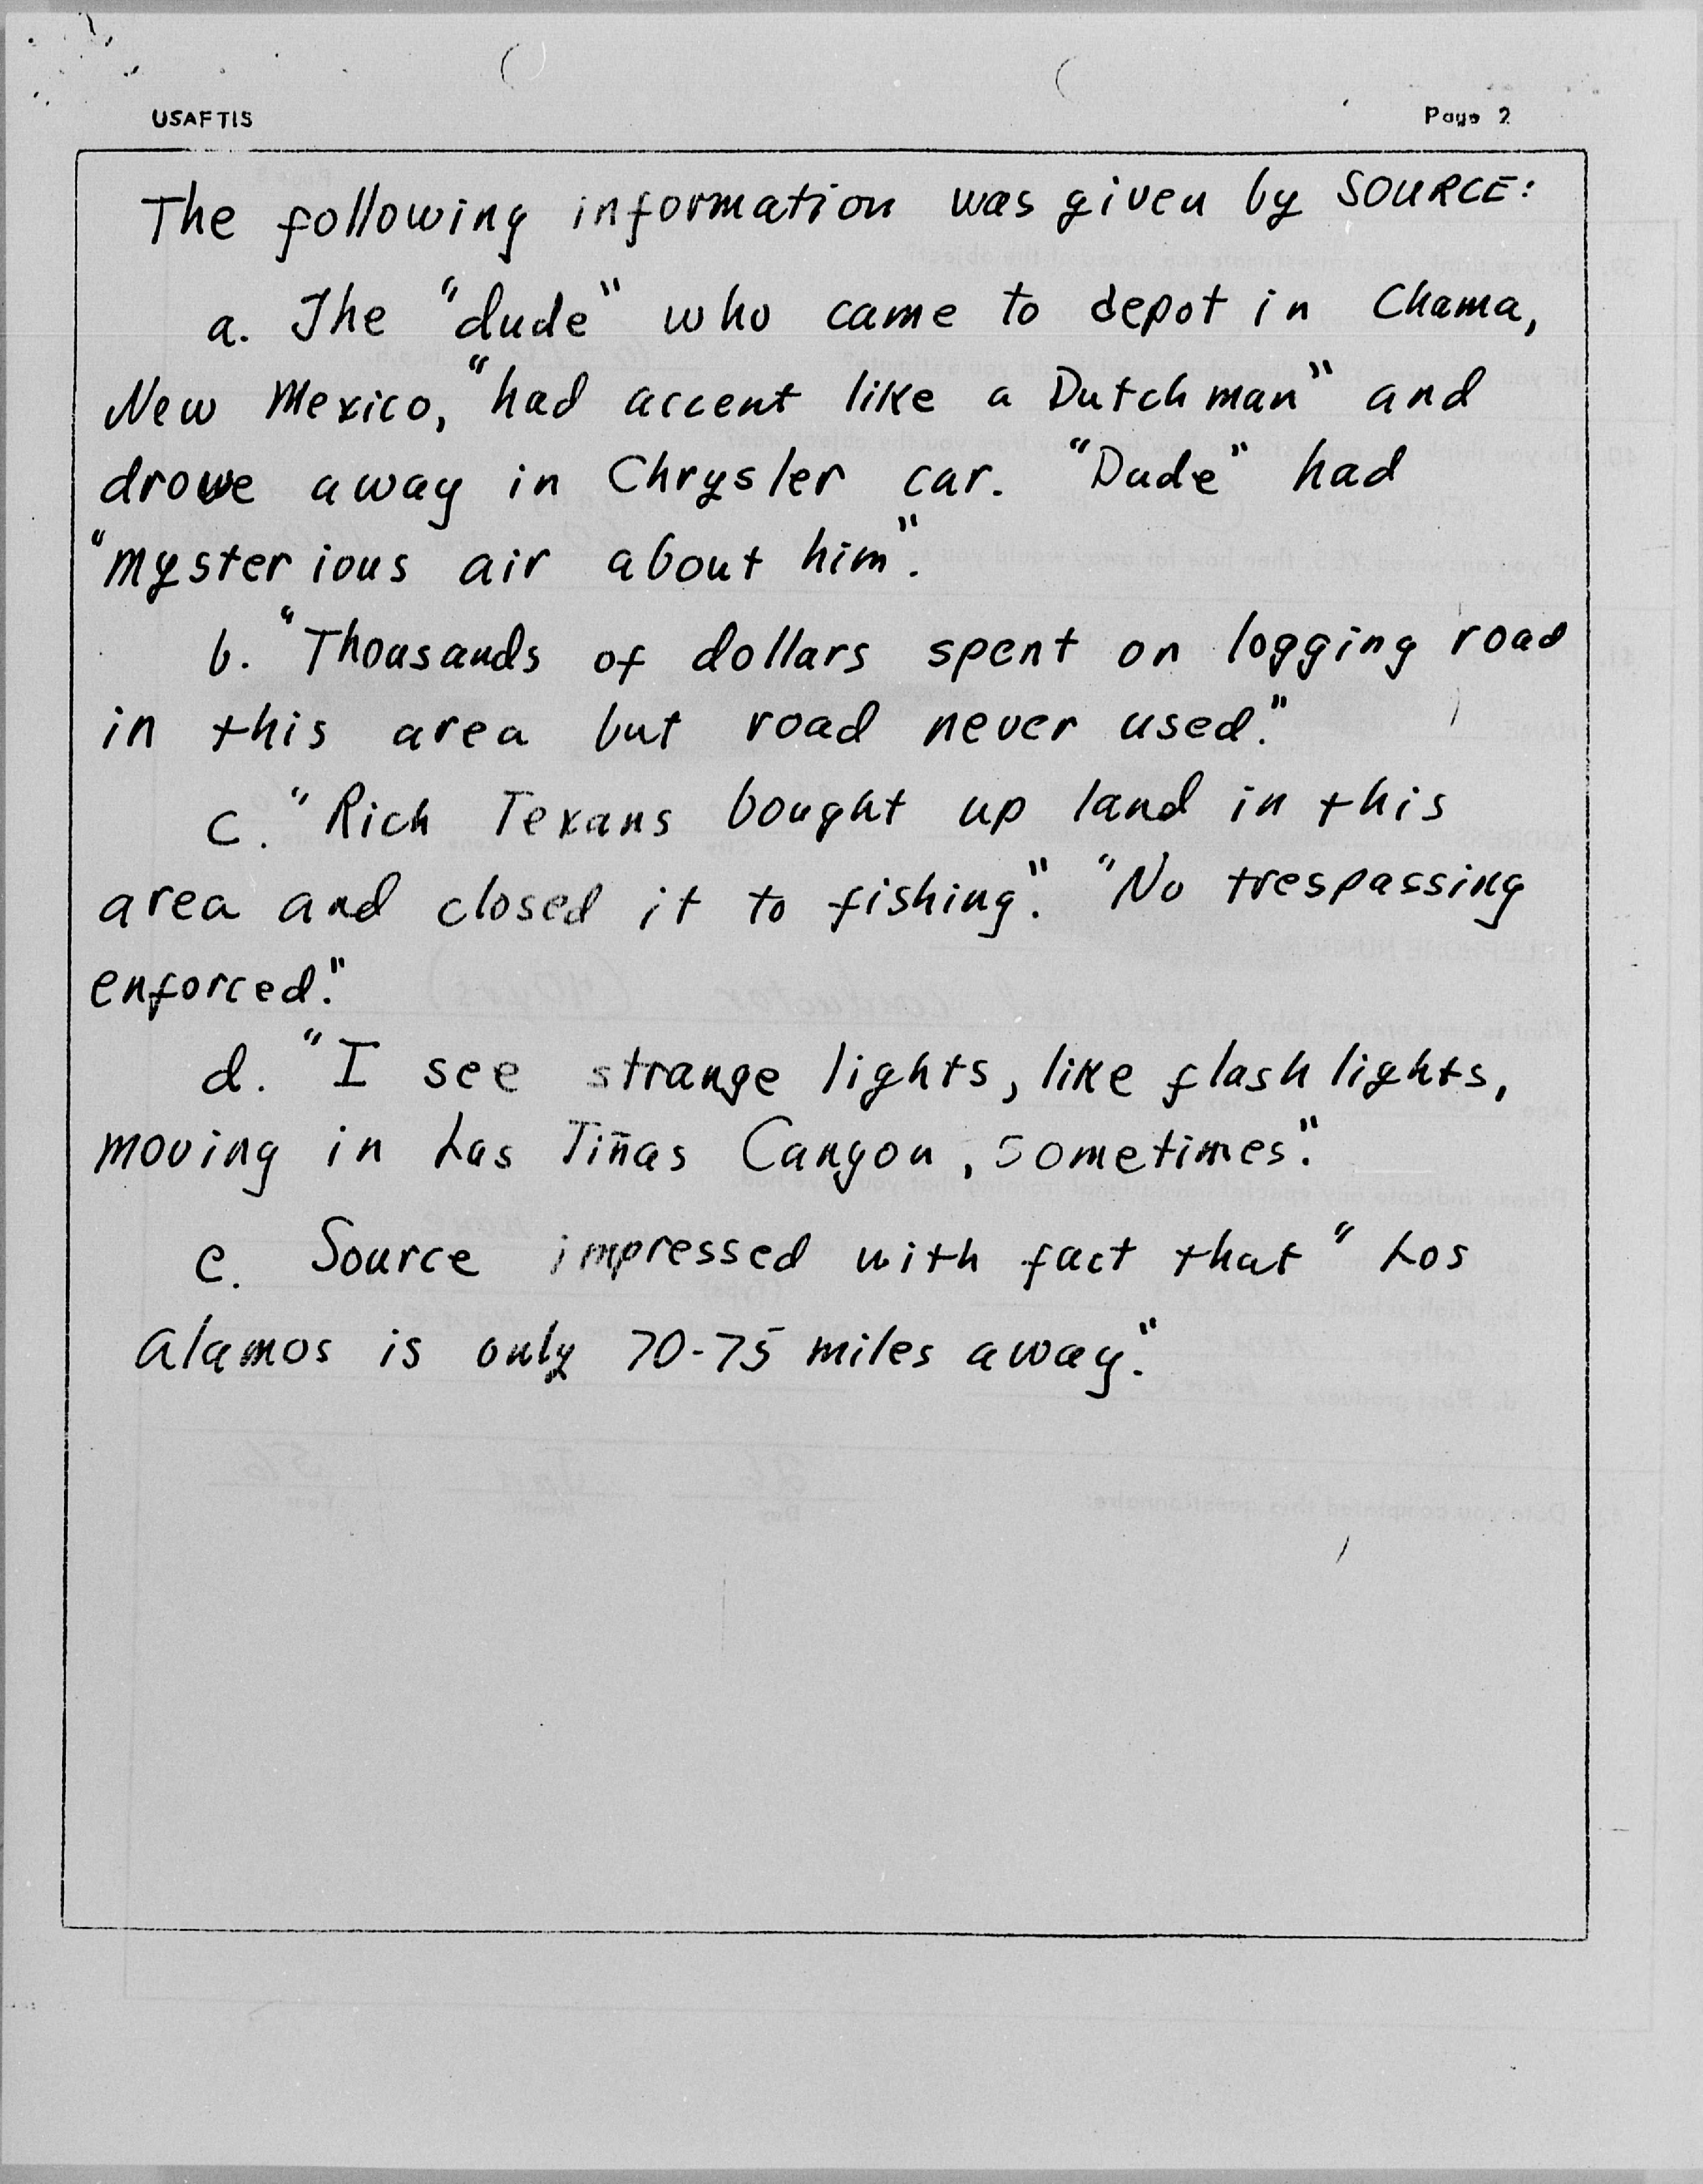 USAFTIS
Page 2
The following information was given by SOURCE:
a. The "dude" who came to depot in Chama,
New Mexico, "had accent like a Dutchman" and
drove away in Chrysler car. "Dude" had
"mysterious air about him".
b. "Thousands of dollars spent on logging road
in this area but road never used."
c. "Rich Texans bought up land in this
area and closed it to fishing." "No trespassing
enforced."
d. "I see strange lights, like flash lights,
moving in Las Tiñas Canyon, sometimes."
e. Source impressed with fact that "Los
Alamos is only 70-75 miles away."